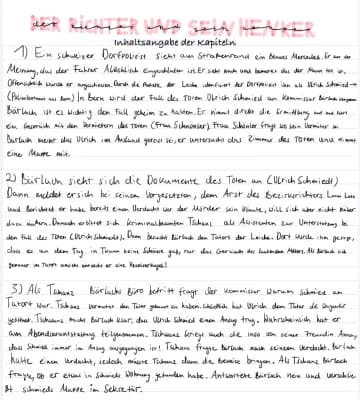 DER RICHTER UND SEIN HENKER
Inhaltsangabe der Kapiteln
1) Ein schweizer Dorfpolizist sieht am Straßenrand ein Blaues Mercedes. Er war der
Meinung, das der Fahrer eingeschlafen ist. Er sieht nach und bemerkt das der Mann tot ist,
Offensichtlich wurde er angeschossen. Durch die Papiere der Leiche identifiziert der Dorfpolizist ihn als Ulrich Schmied →
(Polizeileutnant aus Bern) In Bern wird der Fall des Toten Ulrich Schmied an Kommissar Bärlach
Bärlach, ist es wichtig den Fall geheim zu halten. Er nimmt direkt die Ermittlung auf und
ein Gespräch mit den Vermietern des Toten (Frau Schönler). Frau Schönler fragt wo sein Vermieter ist
Bärlach meint das Ulrich im Ausland gereist sei, er untersucht das Zimmer des Toten und nimmt
eine Mappe mit.
2) Bärlach sieht sich die Dokumente des Toten an (Ulrich Schmied)
Dann meldet er sich bei seinem Vorgesetzten, dem Arzt des Bezirksrichters Lucius Lutz
und Berichtet er habe bereits einen Verdacht wer der Mörder sein könnte, will sich aber nicht
dazu äußern. Danach erbittet sich Kriminalbeamten Tschanz als Assistenten zur Unterstützung bei
den Fall des Toten (Ulrich Schmieds). Dann besucht Bärlach den Tatort der Leiche. Dort wurde ihm gesagt,
dass es an dem Tag in Twann keine Schüsse gab, nur das Geräusch des laufenden Motors. Als Bärlach sich
genauer im Tatort umsieht entdeckt er eine Revolverkugel!
3) Als Tschanz Bärlachs Büro betritt fragt der Kommissar warum Schmied am
Tatort war. Tschanz vermutet den Täter gekannt zu haben. Schließlich hat Ulrich dem Täter die Wagentür
geöffnet. Tschanz macht Bärlach klar, das Ulrich Schmied einen Anzug trug. Wahrscheinlich hat er
am Abendveranstaltung teilgenommen. Tschanz kriegt auch die Info von seiner Freundin Anna,
dass Schmied immer im Anzug ausgegangen ist! Tschanz fragte Bärlach nach seinem Verdacht. Bärlach
hatte einen Verdacht, jedoch müsste Tschanz dann die Beweise bringen. Als Tschanz Bärlach
fragte, ob er etwas in Schmieds Wohnung gefunden habe. Antwortete Bärlach Nein und verschließ
schmieds Mappe im Sekretär.